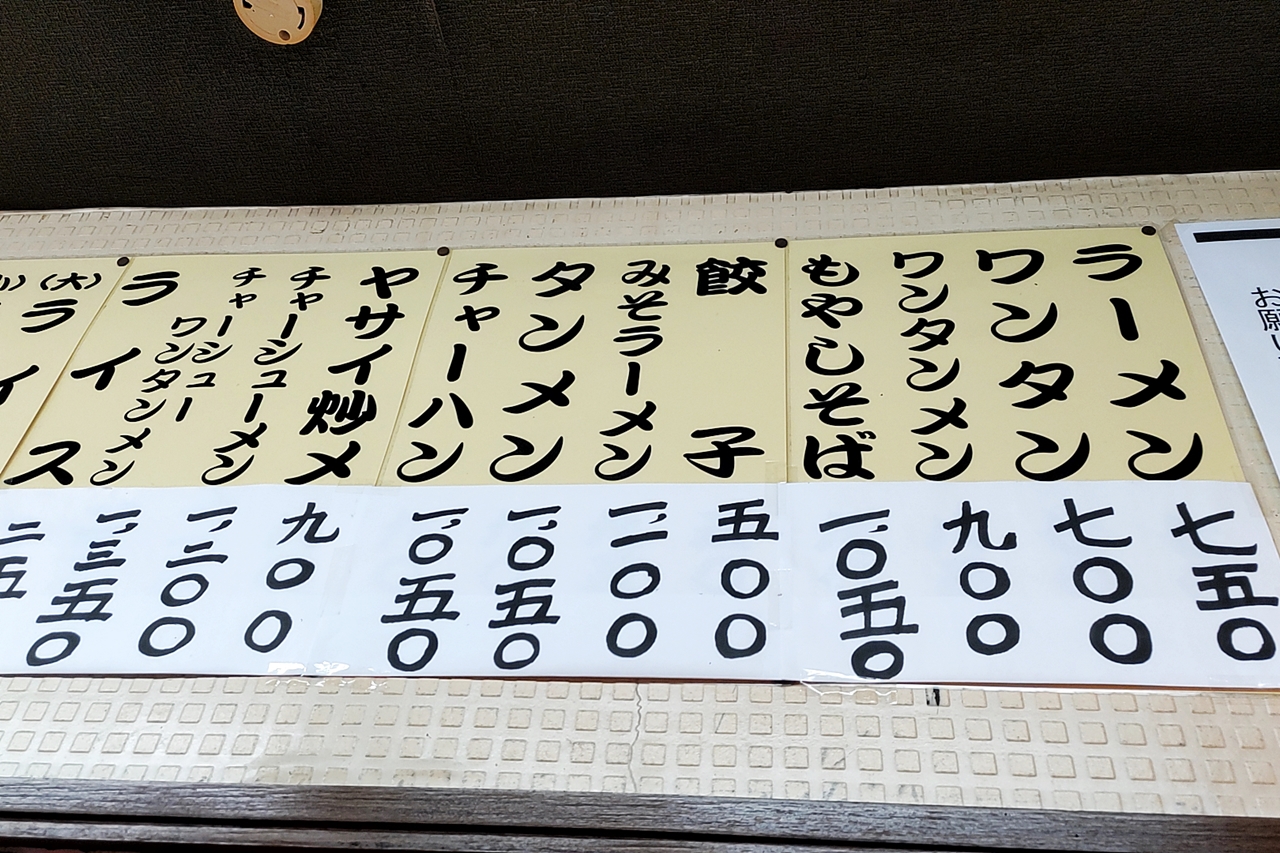 お願い
ラーメン
七五〇
ワンタン
七〇〇
ワンタンメン
九〇〇
もやしそば
一、〇五〇
餃子
五〇〇
みそラーメン
一、一〇〇
タンメン
一、〇五〇
チャーハン
一、〇五〇
ヤサイ炒メ
九〇〇
チャーシューメン
一、二〇〇
チャーシュー
ワンタンメン
一、三五〇
ライス
二五
(大)
ライ